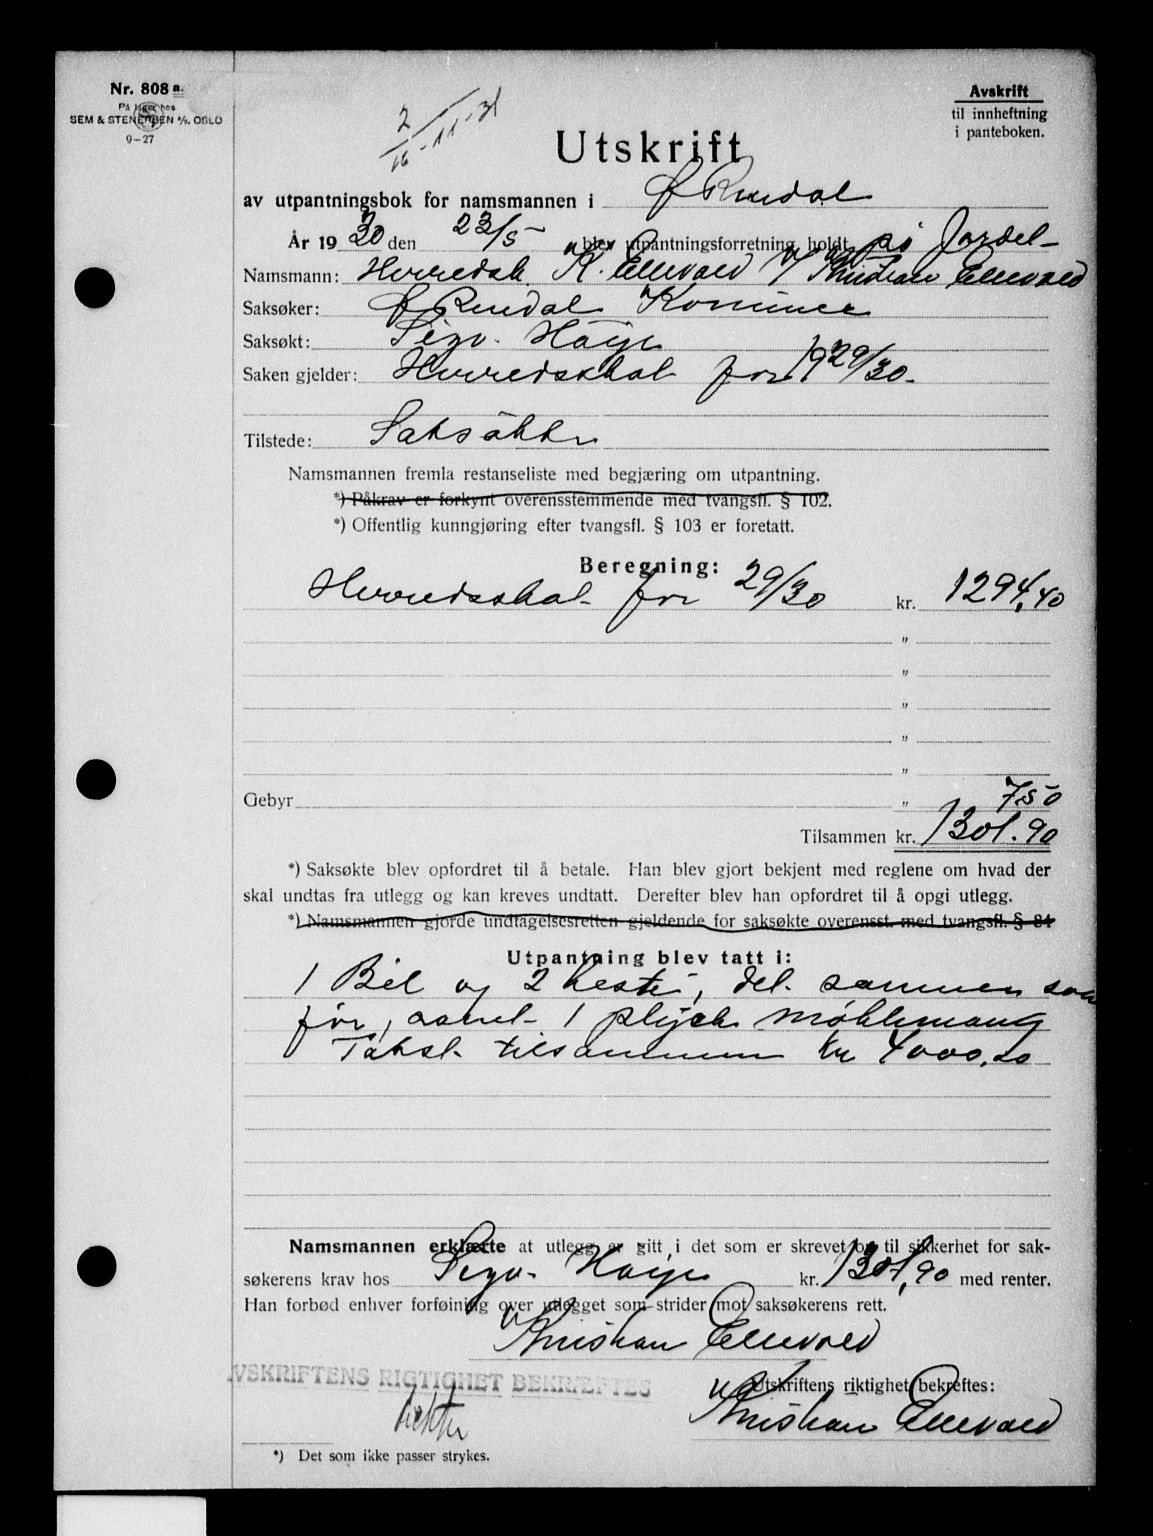 Nr. 808 a.
På lager hos
SEM & STENERSEN A/S. OSLO
9-27
Avskrift
til innheftning
i panteboken.
2/16-11-31
Utskrift
av utpantningsbok for namsmannen i Ø Rendal
År 19 30 den 23/5 blev utpantningsforretning holdt på Jordet
Namsmann: Herredsk. K. Ellevold v/ Kristian Ellevold
Saksøker: Ø Rendal Kommune
Saksøkt: Sigv. Høye
Saken gjelder: Herredsskat for 1929/30.
Tilstede: Saksøkte
Namsmannen fremla restanseliste med begjæring om utpantning.
*) Påkrav er forkynt overensstemmende med tvangsfl. § 102.
*) Offentlig kunngjøring efter tvangsfl. § 103 er foretatt.
Beregning:
Herredsskat for 29/30 kr. 1294,40
"
"
"
"
"
Gebyr " 7.50
Tilsammen kr. 1301.90
*) Saksøkte blev opfordret til å betale. Han blev gjort bekjent med reglene om hvad der
skal undtas fra utlegg og kan kreves undtatt. Derefter blev han opfordret til å opgi utlegg.
*) Namsmannen gjorde undtagelsesretten gjeldende for saksøkte overensst. med tvangsfl. § 84
Utpantning blev tatt i:
1 Bil og 2 heste, det. sammen som
før, samt 1 plysch møblemang
Takst tilsammen kr 4000,00
Namsmannen erklærte at utlegg er gitt i det som er skrevet op til sikkerhet for sak-
søkerens krav hos Sigv. Høye kr. 1301,90 med renter.
Han forbød enhver forføining over utlegget som strider mot saksøkerens rett.
Kristian Ellevold
AVSKRIFTENS RIGTIGHET BEKRÆFTES
Utskriftens riktighet bekreftes:
Kristian Ellevold
*) Det som ikke passer strykes.